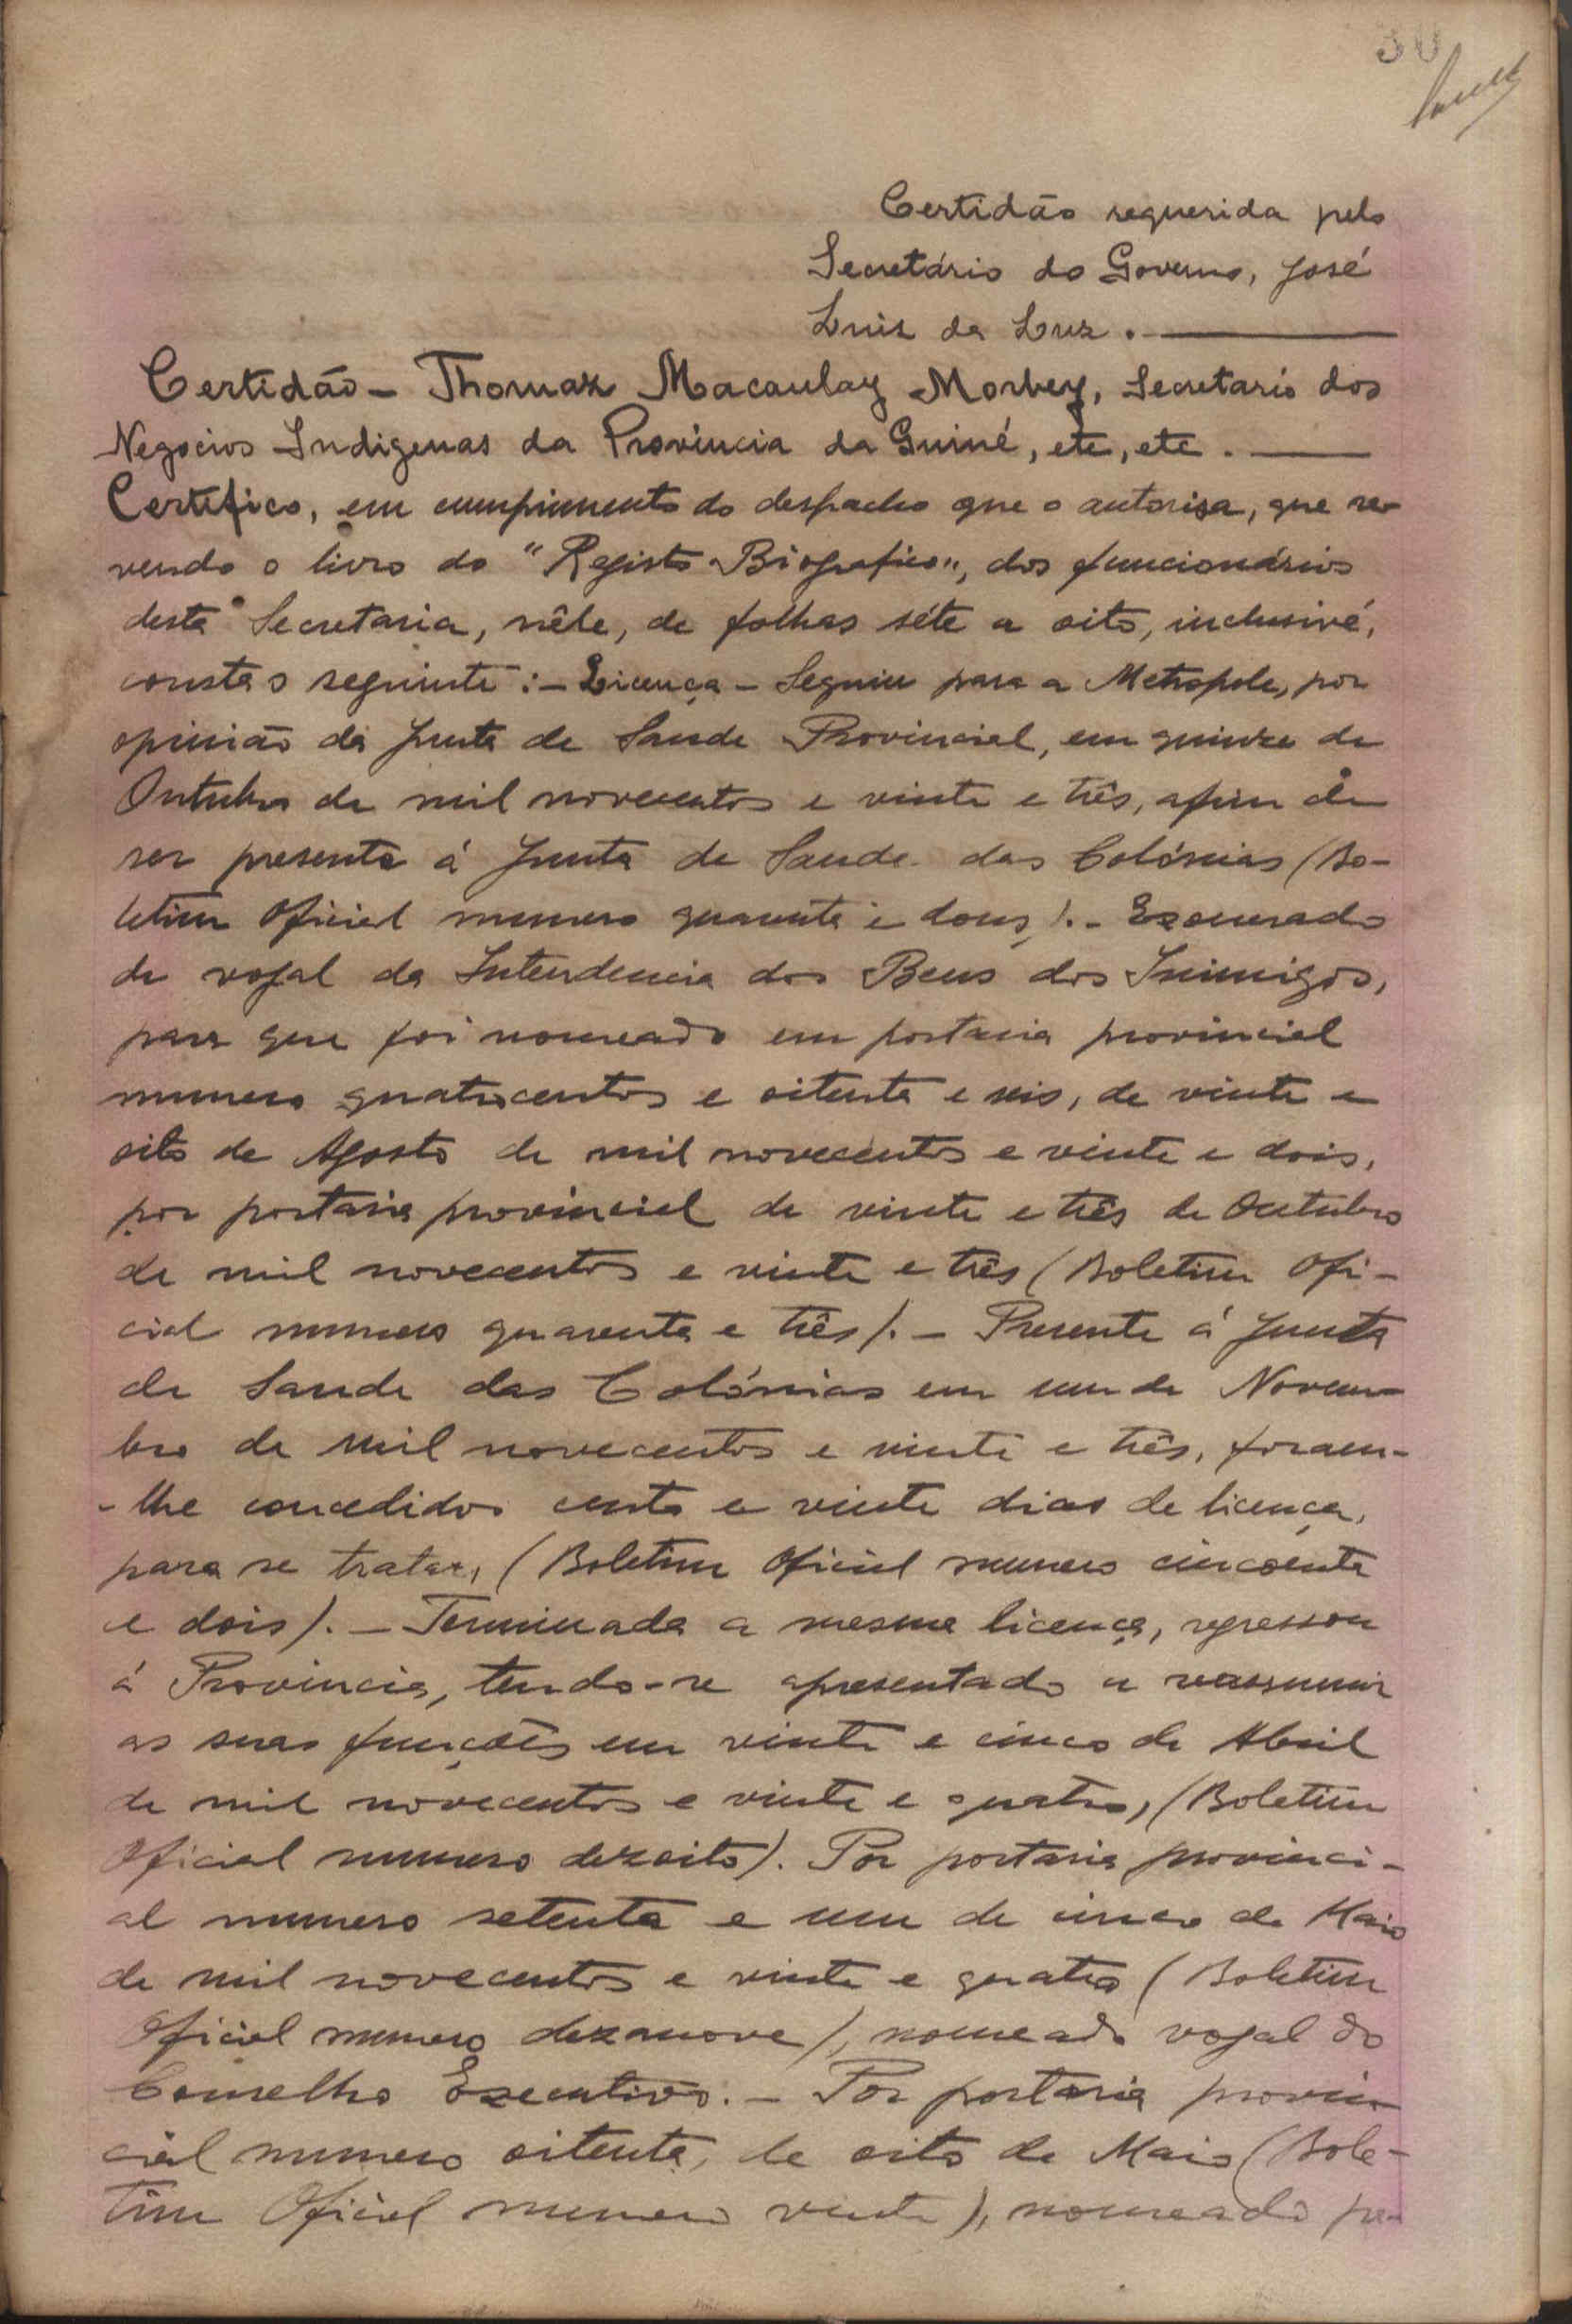 30
Certidão requerida pelo
Secretário do Governo, José
Luis da Luz.
Certidão - Thomaz Macaulay Morbey, Secretario dos
Negocios Indigenas da Provincia da Guiné, etc, etc.
Certifico, em cumprimento do despacho que o autorisa, que re-
vendo o livro do "Registo Biografico", dos funcionários
desta Secretaria, nêle, de folhas séte a oito, inclusivé,
consta o seguinte: - Licença - Seguiu para a Metropole, por
opinião da Junta de Saude Provincial, em quinze de
Outubro de mil novecentos e vinte e três, afim de
ser presente á Junta de Saude das Colónias (Bo-
letim Oficial numero quarenta e dous). - Exonerado
de vogal da Intendencia dos Bens dos Inimigos,
para que foi nomeado em portaria provincial
numero quatrocentos e oitenta e seis, de vinte e
oito de Agosto de mil novecentos e vinte e dois,
por portaria provincial de vinte e três de Outubro
de mil novecentos e vinte e três (Boletim Ofi-
cial numero quarenta e três). - Presente á Junta
de Saude das Colónias em um de Novem-
bro de mil novecentos e vinte e três, foram-
-lhe concedidos cento e vinte dias de licença,
para se tratar, (Boletim Oficial numero cincoenta
e dois). - Terminada a mesma licença, regressou
á Provincia, tendo-se apresentado a reassumir
as suas funções em vinte e cinco de Abril
de mil novecentos e vinte e quatro, (Boletim
Oficial numero dezoito). Por portaria provinci-
al numero setenta e um de cinco de Maio
de mil novecentos e vinte e quatro (Boletim
Oficial numero dezanove), nomeado vogal do
Conselho Executivo. - Por portaria provin-
cial numero oitenta, de oito de Maio (Bole-
tim Oficial numero vinte), nomeado pa-